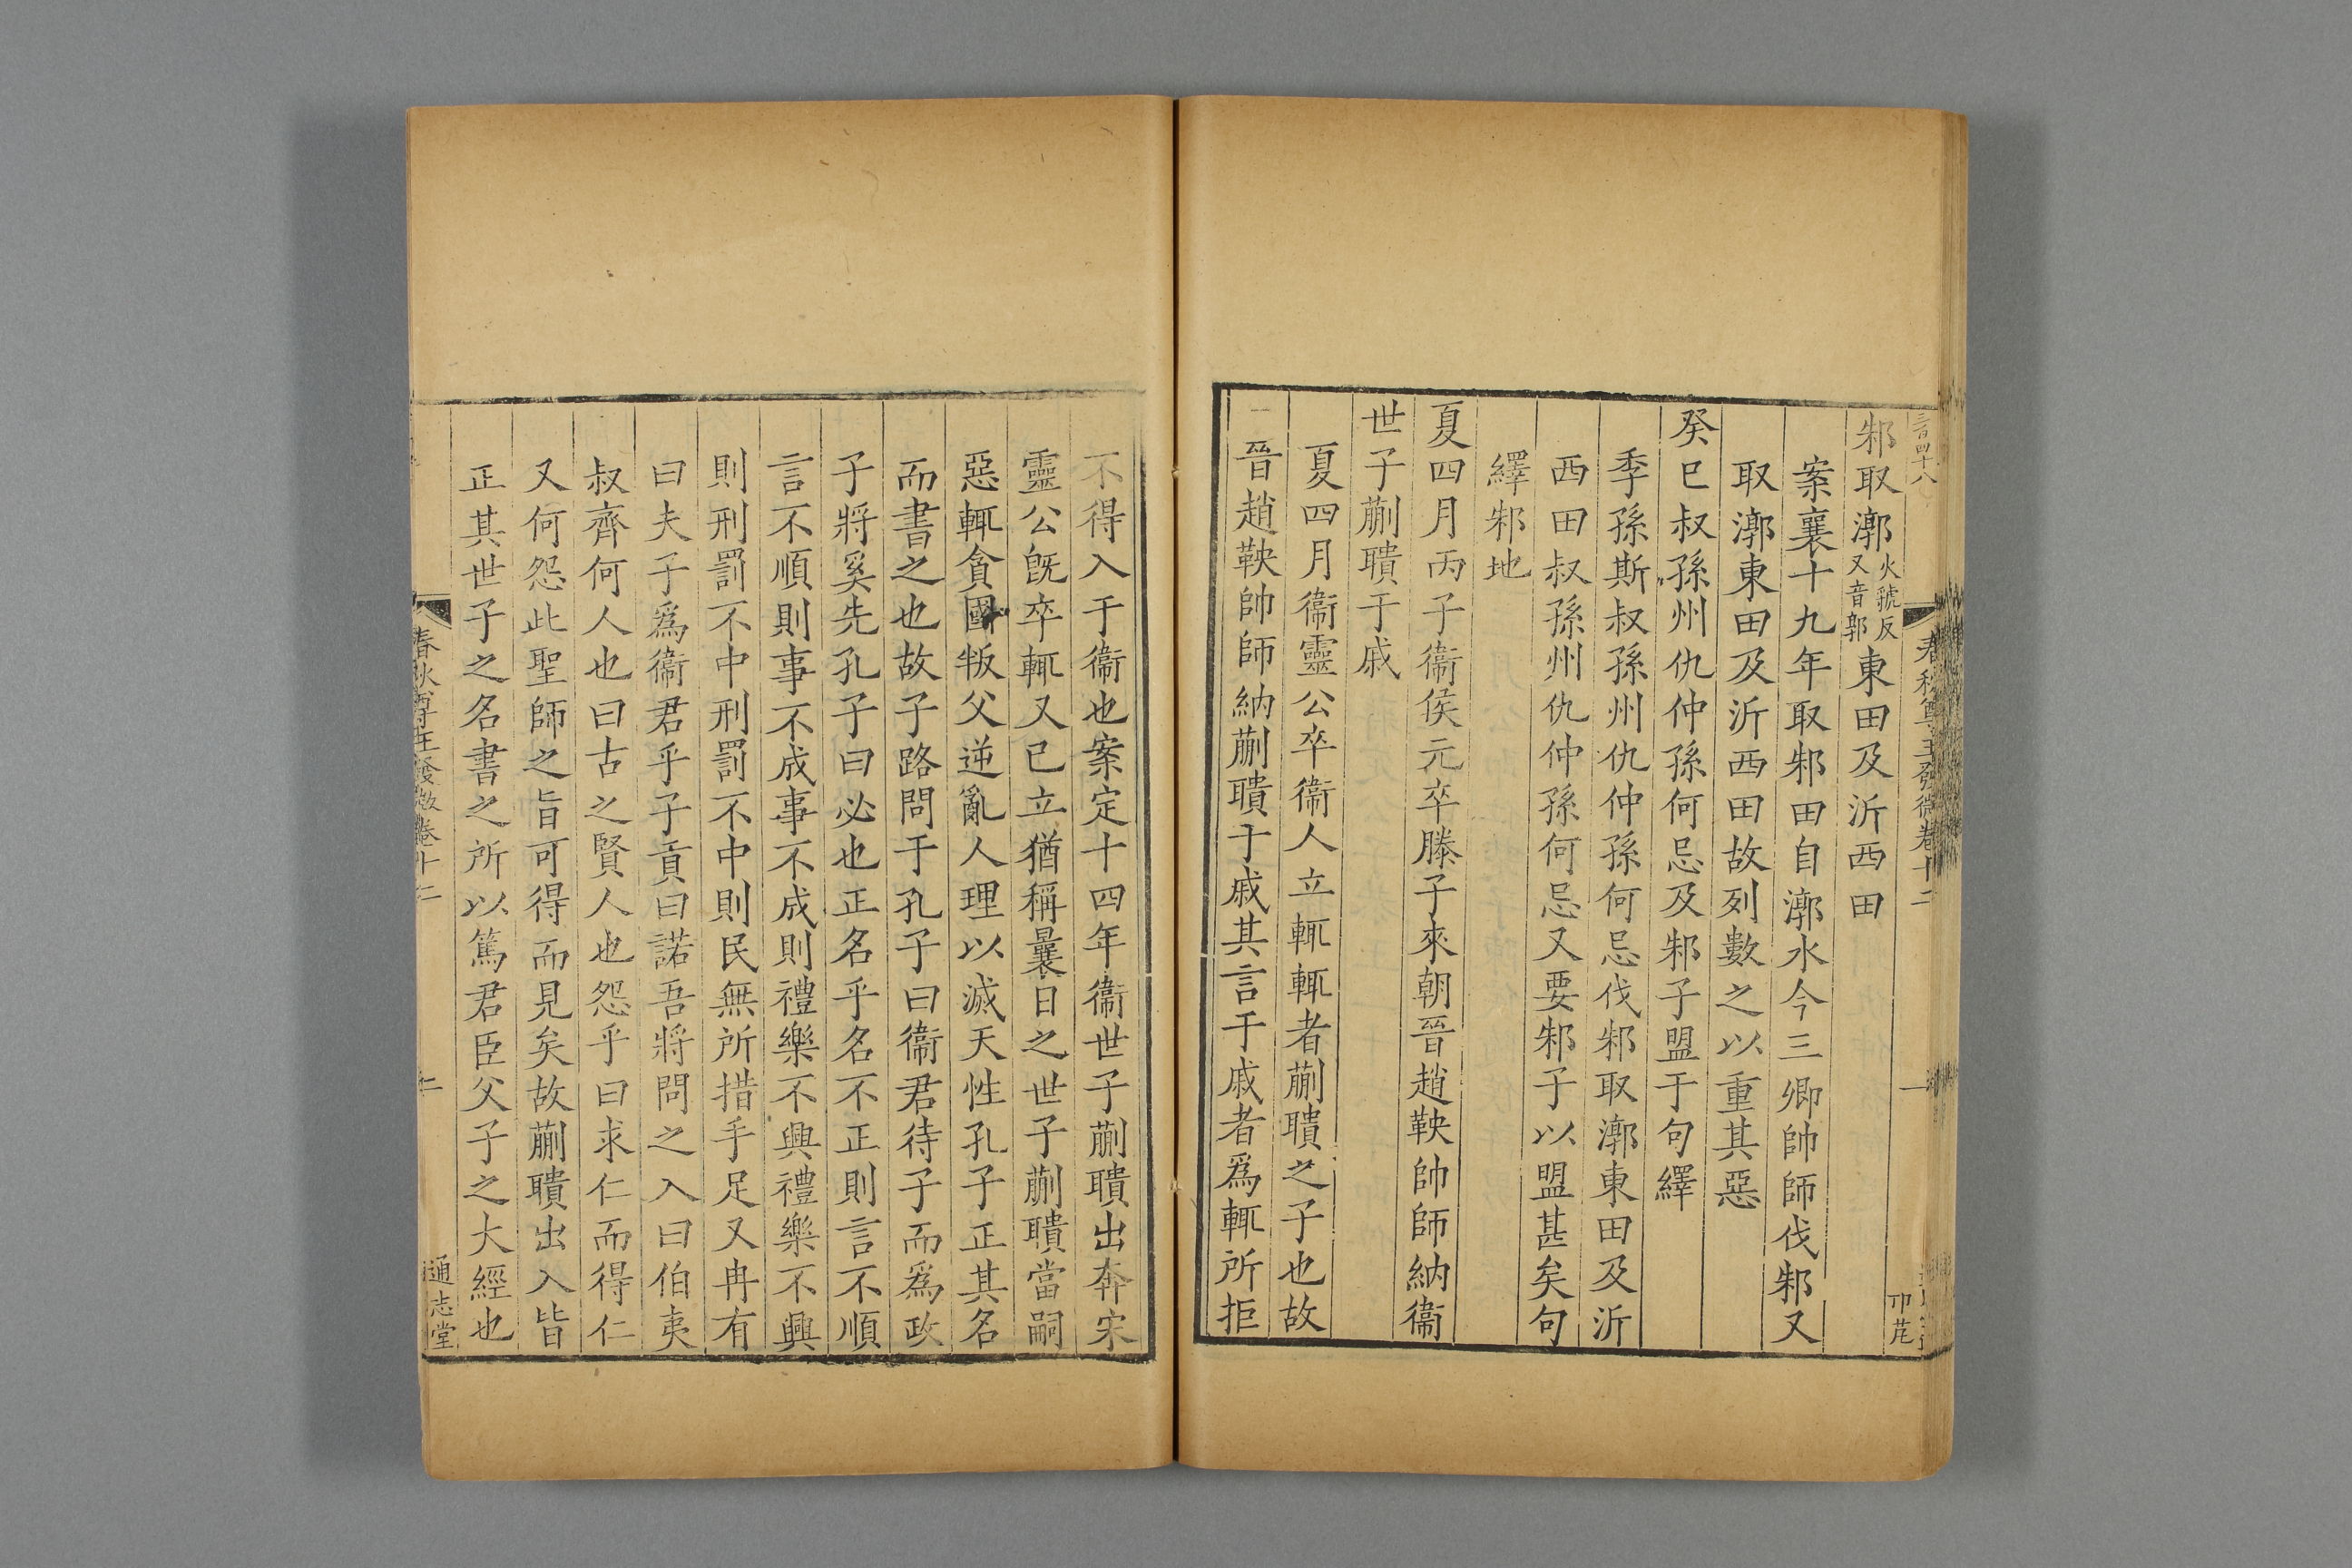 三百四十八
春秋尊王發微卷十二
一
邾取漷火虢反又音郭東田及沂西田
案襄十九年取邾田自漷水今三卿帥師伐邾又
取漷東田及沂西田故列數之以重其惡
癸巳叔孫州仇仲孫何忌及邾子盟于句繹
季孫斯叔孫州仇仲孫何忌伐邾取漷東田及沂
西田叔孫州仇仲孫何忌又要邾子以盟甚矣句
繹邾地
夏四月丙子衞侯元卒滕子來朝晉趙鞅帥師納衞
世子蒯聵于戚
夏四月衞靈公卒衞人立輒輒者蒯聵之子也故
晉趙鞅帥師納蒯聵于戚其言于戚者爲輒所拒
不得入于衞也案定十四年衞世子蒯聵出奔宋
靈公旣卒輒又已立猶稱曩日之世子蒯聵當嗣
惡輒貪國叛父逆亂人理以滅天性孔子正其名
而書之也故子路問于孔子曰衞君待子而爲政
子將奚先孔子曰必也正名乎名不正則言不順
言不順則事不成事不成則禮樂不興禮樂不興
則刑罰不中刑罰不中則民無所措手足又冉有
曰夫子爲衞君乎子貢曰諾吾將問之入曰伯夷
叔齊何人也曰古之賢人也怨乎曰求仁而得仁
又何怨此聖師之旨可得而見矣故蒯聵出入皆
正其世子之名書之所以篤君臣父子之大經也
春秋尊王發微卷十二
二
通志堂